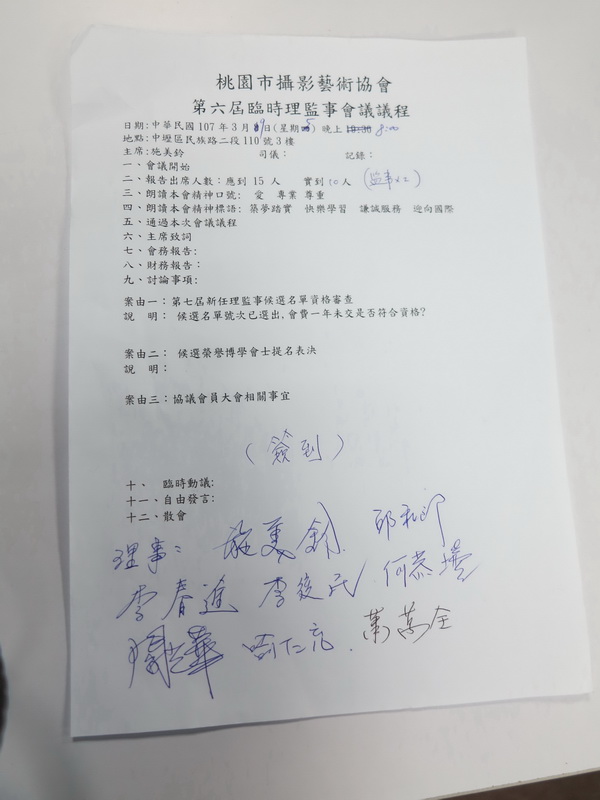 桃園市攝影藝術協會
第六屆臨時理監事會議議程
日期:中華民國 107 年 3 月 9日(星期5) 晚上 8:00
地點:中壢區民族路二段 110 號 3 樓
主席:施美鈴 司儀: 記錄:
一、會議開始
二、報告出席人數:應到 15 人 實到 10人
三、朗讀本會精神口號: 愛 專業 尊重
四、朗讀本會精神標語: 築夢踏實 快樂學習 謙誠服務 迎向國際
五、通過本次會議議程
六、主席致詞
七、會務報告:
八、財務報告:
九、討論事項:
案由一:第七屆新任理監事候選名單資格審查
說 明: 候選名單號次已選出,會費一年未交是否符合資格?
案由二: 候選榮譽博學會士提名表決
說 明:
案由三:協議會員大會相關事宜
(簽到)
十、 臨時動議:
十一、自由發言:
十二、散會
理事: 施美鈴
李春進 李俊民